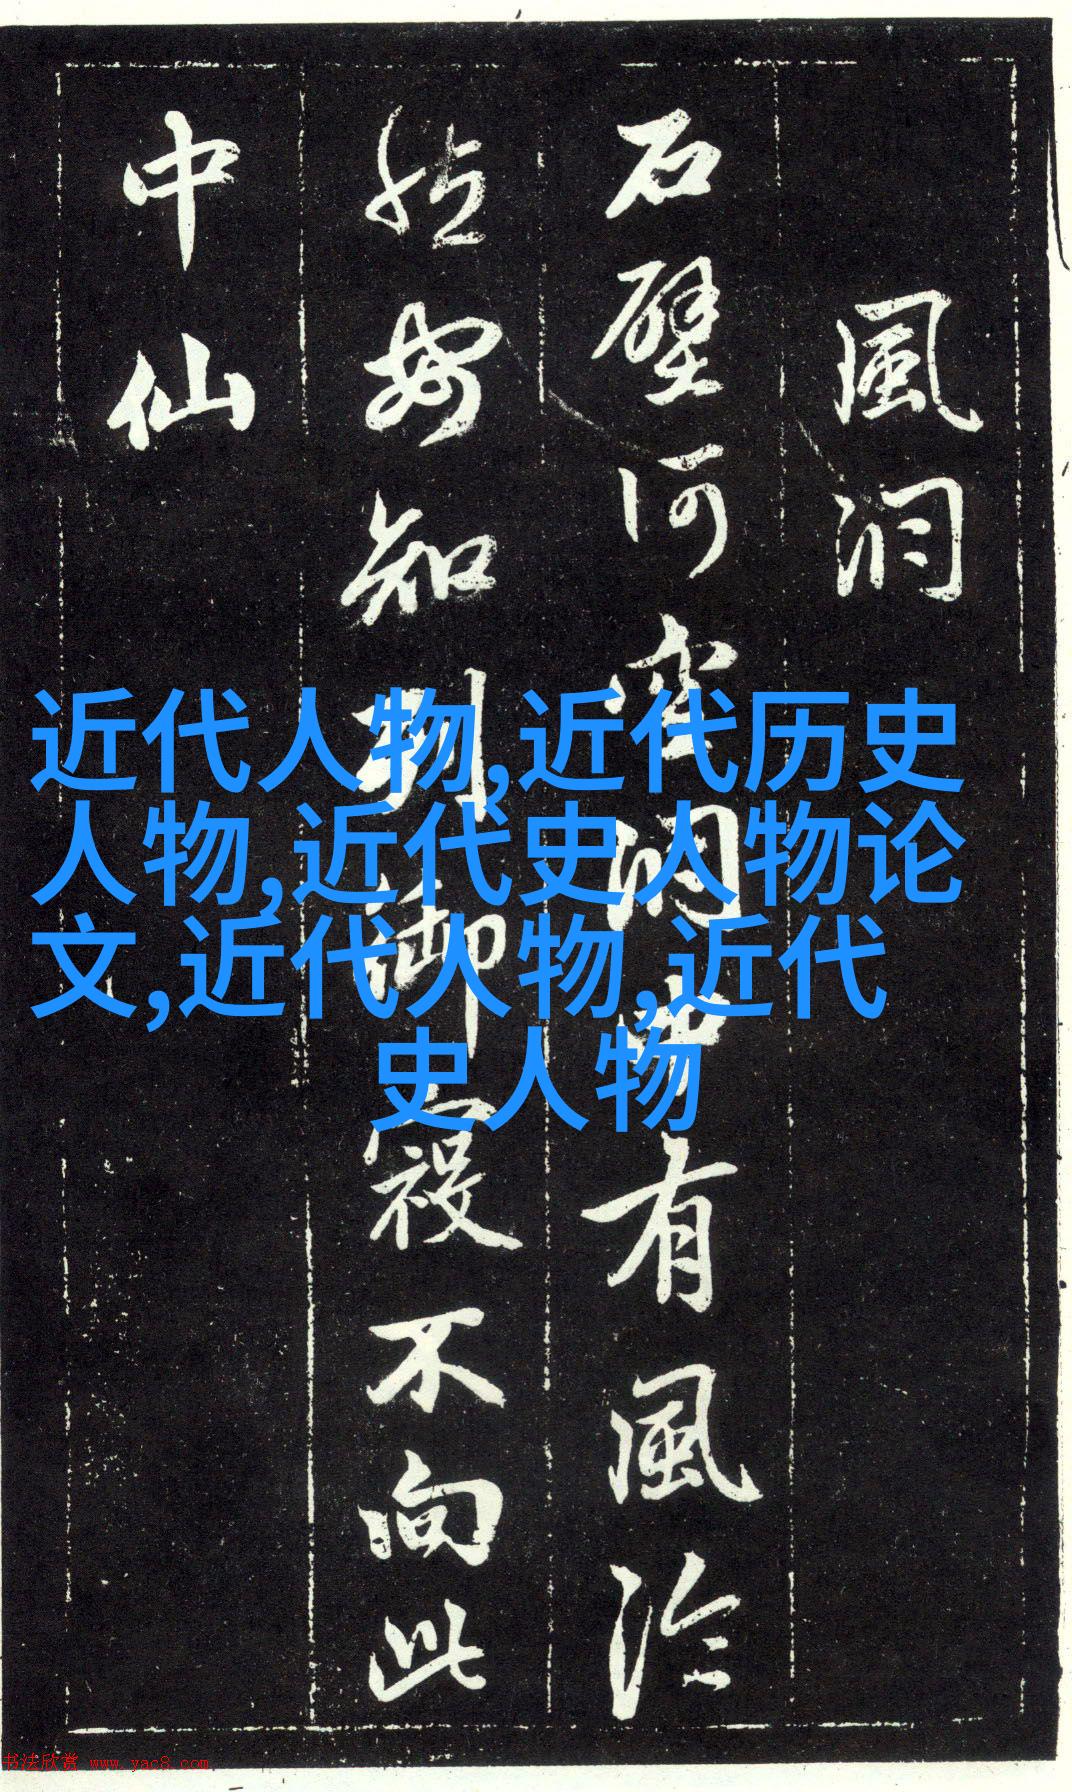 風洞
石壁何空洞中有風泠
然安知列御寇不向此
中仙
近代人物,近代历史
人物,近代史人物论
文,近代人物,近代
史人物
书法欣赏 www.yac8.com